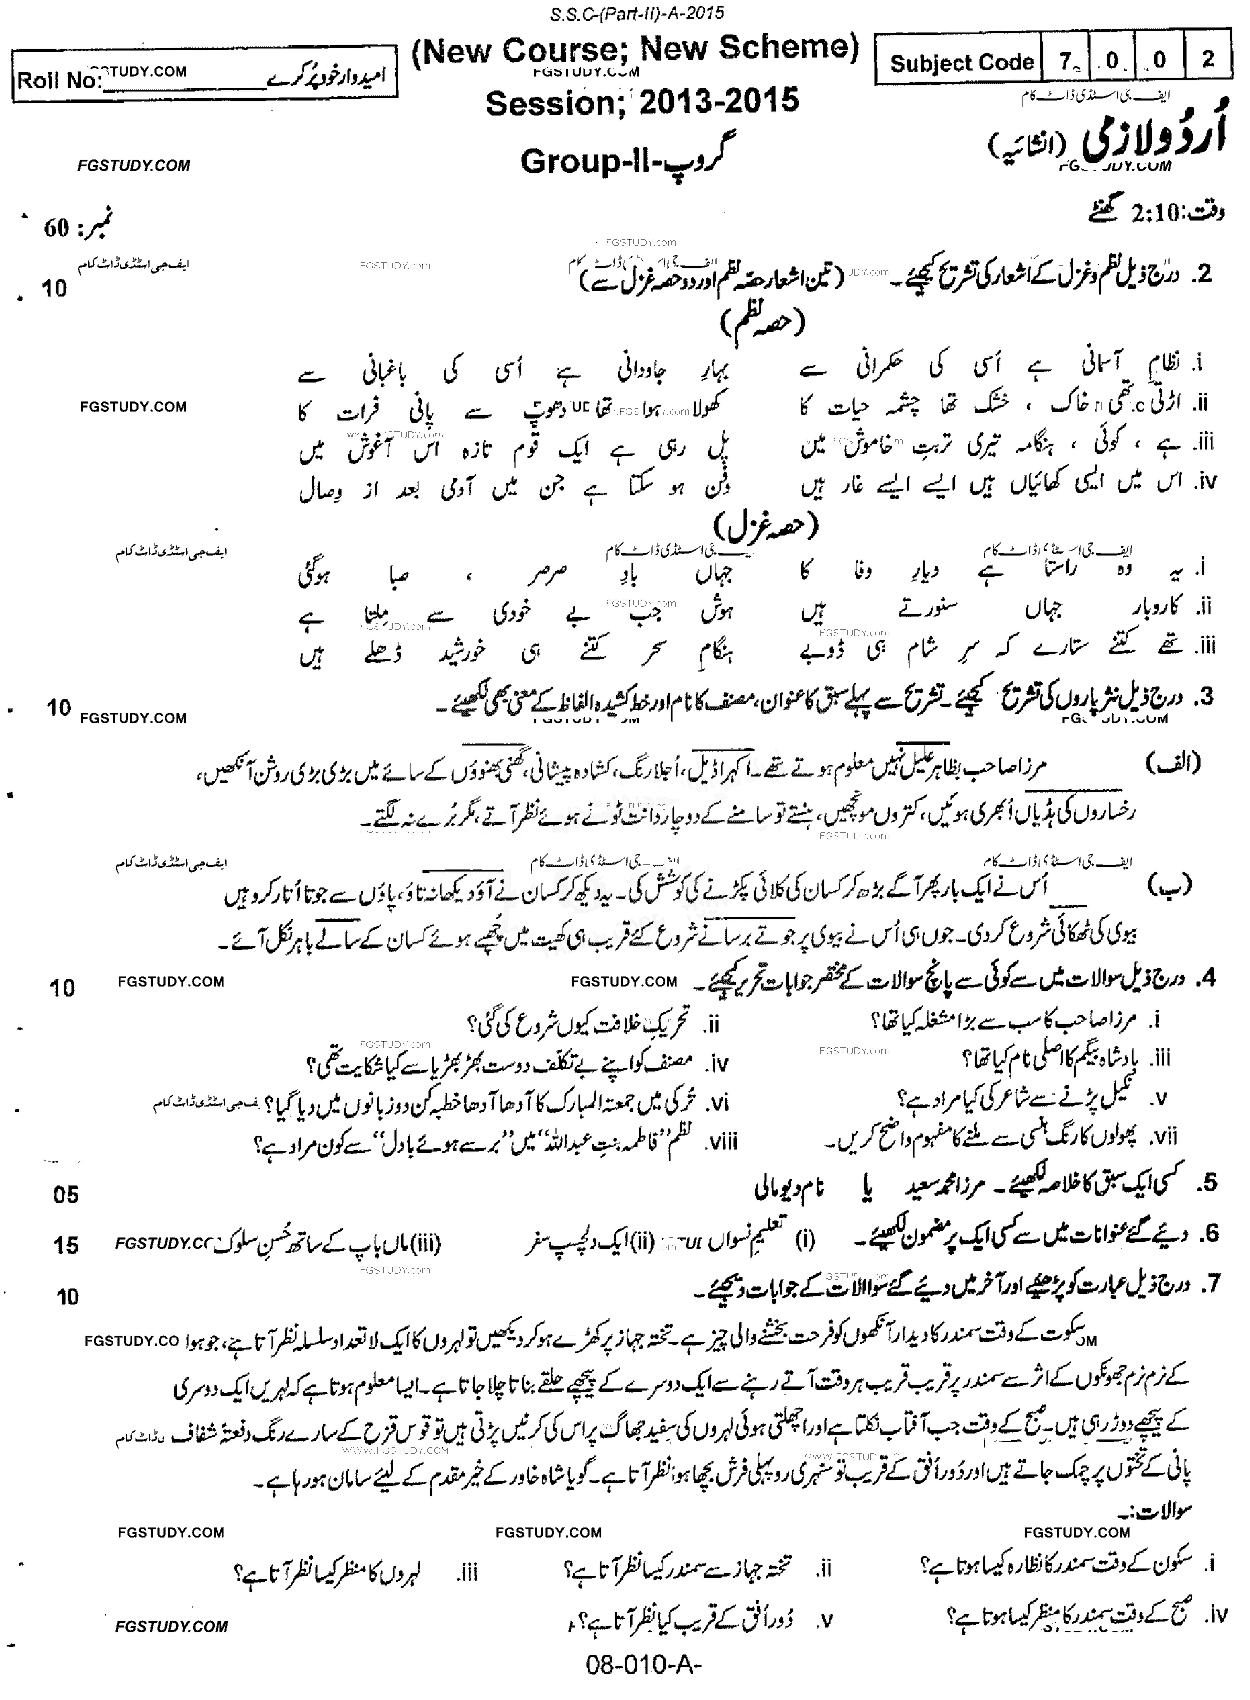 S.S.C-(Part-II)-A-2015
(New Course; New Scheme)
Roll No: امیدوار خود پُر کرے
Subject Code 7 0 0 2
FGSTUDY.COM
Session; 2013-2015
ایف جی اسٹڈی ڈاٹ کام
اُردو لازمی (انشائیہ)
Group-II-گروپ
FGSTUDY.COM
وقت: 2:10 گھنٹے
نمبر: 60
2. درج ذیل نظم و غزل کے اشعار کی تشریح کیجیے۔ (تین اشعار حصہ نظم اور دو حصہ غزل سے) 10
(حصہ نظم)
i. نظامِ آسمانی ہے اُسی کی حکمرانی سے بہارِ جاودانی ہے اُسی کی باغبانی سے
ii. اڑتی تھی خاک ، خشک تھا چشمہ حیات کا کھولا ہوا تھا دھوپ سے پانی فرات کا
FGSTUDY.COM
iii. ہے ، کوئی ، ہنگامہ تیری تربتِ خاموش میں پل رہی ہے ایک قوم تازہ اس آغوش میں
iv. اس میں ایسی کھائیاں ہیں ایسے ایسے غار ہیں دفن ہو سکتا ہے جن میں آدمی بعد از وصال
(حصہ غزل)
ایف جی اسٹڈی ڈاٹ کام
i. یہ وہ راستا ہے دیارِ وفا کا جہاں بادِ صرصر ، صبا ہوگئی
ii. کاروبارِ جہاں سنورتے ہیں ہوش جب بے خودی سے ملتا ہے
iii. تھے کتنے ستارے کہ سرِ شام ہی ڈوبے ہنگامِ سحر کتنے ہی خورشید ڈھلے ہیں
3. درج ذیل نثر پاروں کی تشریح کیجئے۔ تشریح سے پہلے سبق کا عنوان، مصنف کا نام اور خط کشیدہ الفاظ کے معنی بھی لکھیئے۔ 10
FGSTUDY.COM
(الف) مرزا صاحب بظاہر علیل نہیں معلوم ہوتے تھے۔ اکہرا ڈیل، اُجلا رنگ، کشادہ پیشانی، گھنی بھنوؤں کے سائے میں بڑی بڑی روشن آنکھیں،
رخساروں کی ہڈیاں اُبھری ہوئیں، کتروں مونچھیں، ہنستے تو سامنے کے دو چار دانت ٹوٹے ہوئے نظر آتے، مگر بُرے نہ لگتے۔
ایف جی اسٹڈی ڈاٹ کام
(ب) اُس نے ایک بار پھر آگے بڑھ کر کسان کی کلائی پکڑنے کی کوشش کی۔ یہ دیکھ کر کسان نے آؤ دیکھا نہ تاؤ، پاؤں سے جوتا اُتار کر وہیں
بیوی کی ٹھکائی شروع کر دی۔ جوں ہی اُس نے بیوی پر جوتے برسانے شروع کئے قریب ہی کھیت میں چُھپے ہوئے کسان کے سالے باہر نکل آئے۔
4. درج ذیل سوالات میں سے کوئی سے پانچ سوالات کے مختصر جوابات تحریر کیجئے۔ FGSTUDY.COM FGSTUDY.COM 10
i. مرزا صاحب کا سب سے بڑا مشغلہ کیا تھا؟ ii. تحریکِ خلافت کیوں شروع کی گئی؟
iii. بادشاہ بیگم کا اصلی نام کیا تھا؟ iv. مصنف کو اپنے بے تکلف دوست بھڑ بھڑیا سے کیا شکایت تھی؟
v. نکیل پڑنے سے شاعر کی کیا مراد ہے؟ vi. تُرکی میں جمعتہ المبارک کا آدھا آدھا خطبہ کن دو زبانوں میں دیا گیا؟
vii. پھولوں کا رنگ ہنسی سے ملنے کا مفہوم واضح کریں۔ viii. نظم "فاطمہ بنتِ عبداللہ" میں "برسے ہوئے بادل" سے کون مراد ہے؟
5. کسی ایک سبق کا خلاصہ لکھیئے۔ مرزا محمد سعید یا نام دیو مالی 05
6. دیئے گئے عنوانات میں سے کسی ایک پر مضمون لکھیئے۔ (i) تعلیمِ نسواں (ii) ایک دلچسپ سفر (iii) ماں باپ کے ساتھ حُسنِ سلوک 15
7. درج ذیل عبارت کو پڑھیئے اور آخر میں دیئے گئے سوالات کے جوابات دیجئے۔ 10
سکوت کے وقت سمندر کا دیدار آنکھوں کو فرحت بخشنے والی چیز ہے۔ تختہ جہاز پر کھڑے ہو کر دیکھیں تو لہروں کا ایک لاتعداد سلسلہ نظر آتا ہے، جو ہوا
کے نرم نرم جھونکوں کے اثر سے سمندر پر قریب قریب ہر وقت آتے رہنے سے ایک دوسرے کے پیچھے حلقے بناتا چلا جاتا ہے۔ ایسا معلوم ہوتا ہے کہ لہریں ایک دوسری
کے پیچھے دوڑ رہی ہیں۔ صبح کے وقت جب آفتاب نکلتا ہے اور اچھلتی ہوئی لہروں کی سفید جھاگ پر اس کی کرنیں پڑتی ہیں تو قوس قزح کے سارے رنگ دفعتۂ شفاف
پانی کے تختوں پر چمک جاتے ہیں اور دُور اُفق کے قریب تو سنہری روپہلی فرش بچھا ہوا نظر آتا ہے۔ گویا شاہ خاور کے خیر مقدم کے لیئے سامان ہو رہا ہے۔
سوالات:۔
FGSTUDY.COM FGSTUDY.COM FGSTUDY.COM
i. سکون کے وقت سمندر کا نظارہ کیسا ہوتا ہے؟ ii. تختہ جہاز سے سمندر کیسا نظر آتا ہے؟ iii. لہروں کا منظر کیسا نظر آتا ہے؟
iv. صبح کے وقت سمندر کا منظر کیسا ہوتا ہے؟ v. دُور اُفق کے قریب کیا نظر آتا ہے؟
FGSTUDY.COM
08-010-A-